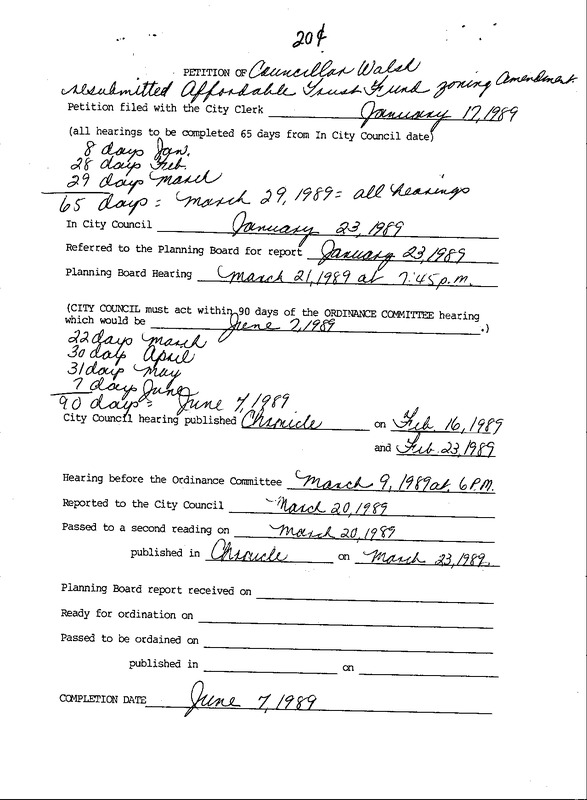 20¢
PETITION OF Councillor Walsh
resubmitted Affordable Trust Fund zoning Amendment
Petition filed with the City Clerk January 17, 1989
(all hearings to be completed 65 days from In City Council date)
8 days Jan.
28 days Feb.
29 days March
65 days = March 29, 1989 = all hearings
In City Council January 23, 1989
Referred to the Planning Board for report January 23, 1989
Planning Board Hearing March 21, 1989 at 7:45 p.m.
(CITY COUNCIL must act within 90 days of the ORDINANCE COMMITTEE hearing
which would be June 7, 1989 .)
22 days March
30 days April
31 days May
7 days June
90 days = June 7, 1989
City Council hearing published Chronicle on Feb. 16, 1989
and Feb. 23, 1989
Hearing before the Ordinance Committee March 9, 1989 at 6 P.M.
Reported to the City Council March 20, 1989
Passed to a second reading on March 20, 1989
published in Chronicle on March 23, 1989.
Planning Board report received on
Ready for ordination on
Passed to be ordained on
published in on
COMPLETION DATE June 7, 1989